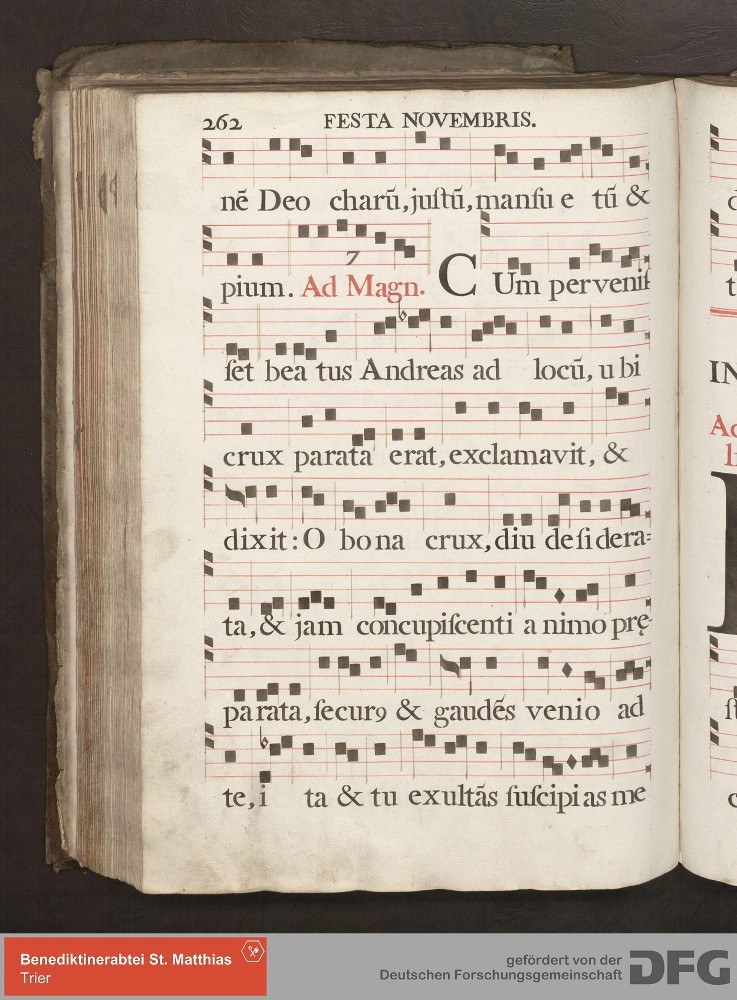 262 FESTA NOVEMBRIS.
nē Deo charū, juſtū, manſu e tū &
pium. Ad Magn. 7 CUm perveniſ
ſet bea tus Andreas ad locū, u bi
crux parata erat, exclamavit, &
dixit: O bo na crux, diu deſidera=
ta, & jam concupiſcenti a nimo prę-
parata, ſecurꝯ & gaudēs venio ad
te, i ta & tu exultās ſuſcipi as me
IN
Benediktinerabtei St. Matthias
Trier
gefördert von der
Deutschen Forschungsgemeinschaft
DFG